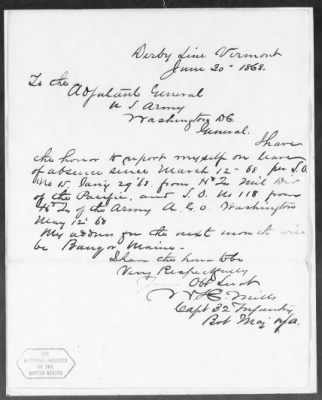 Derby Line Vermont
June 30th 1868.
To the
Adjutant General
U S Army
Washington DC
General.
I have
the honor to report myself on leave
of absence since March 12th 68 per S.O.
No 15, Jan'y 29/68. from Hd Qrs Mil Div
of the Pacific, and S.O. No 118 from
Hd Qrs of the Army A.G.O. Washington
May 18th 68
My address for the next month will
be Bangor, Maine.
I have the honor to be
Very Respectfully
Obt Servt
W H Mills
Capt 32d Infantry
Bvt Maj USA.
THE
NATIONAL ARCHIVES
OF THE
UNITED STATES